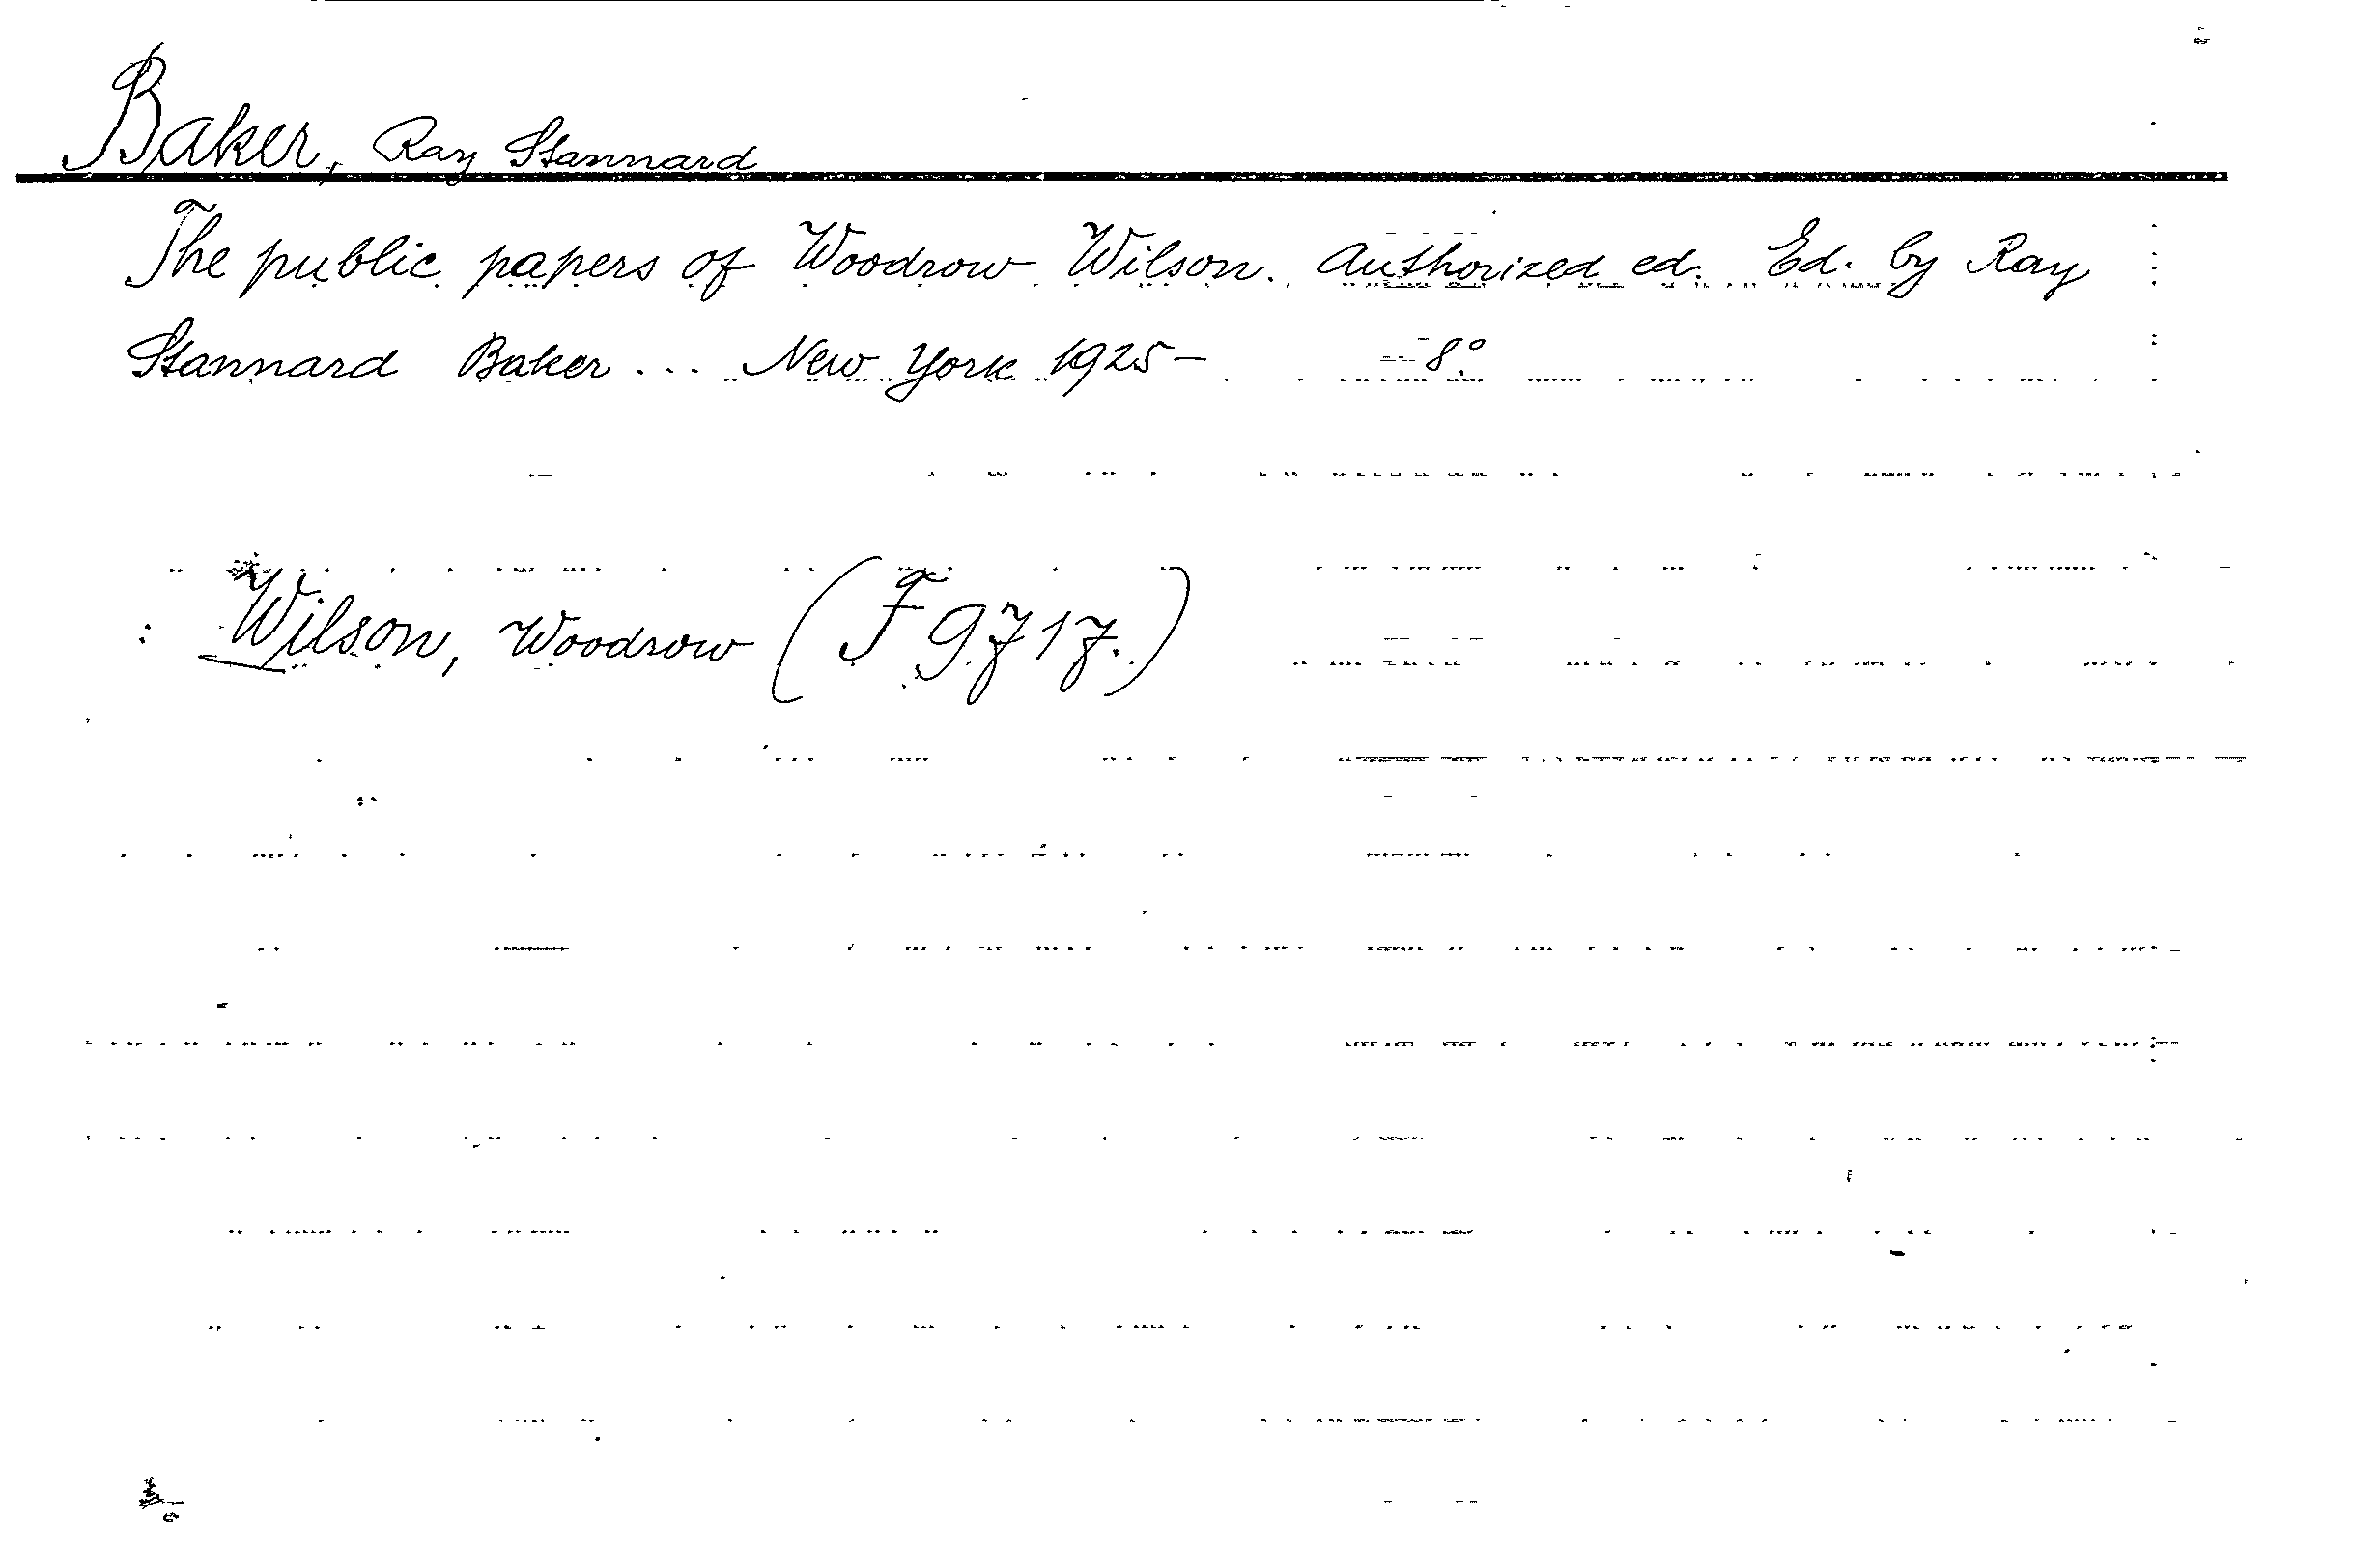 Baker, Ray Stannard
The public papers of Woodrow Wilson. Authorized ed. Ed. by Ray
Stannard Baker... New York 1925- 8°.
: Wilson, Woodrow (F 9717.)